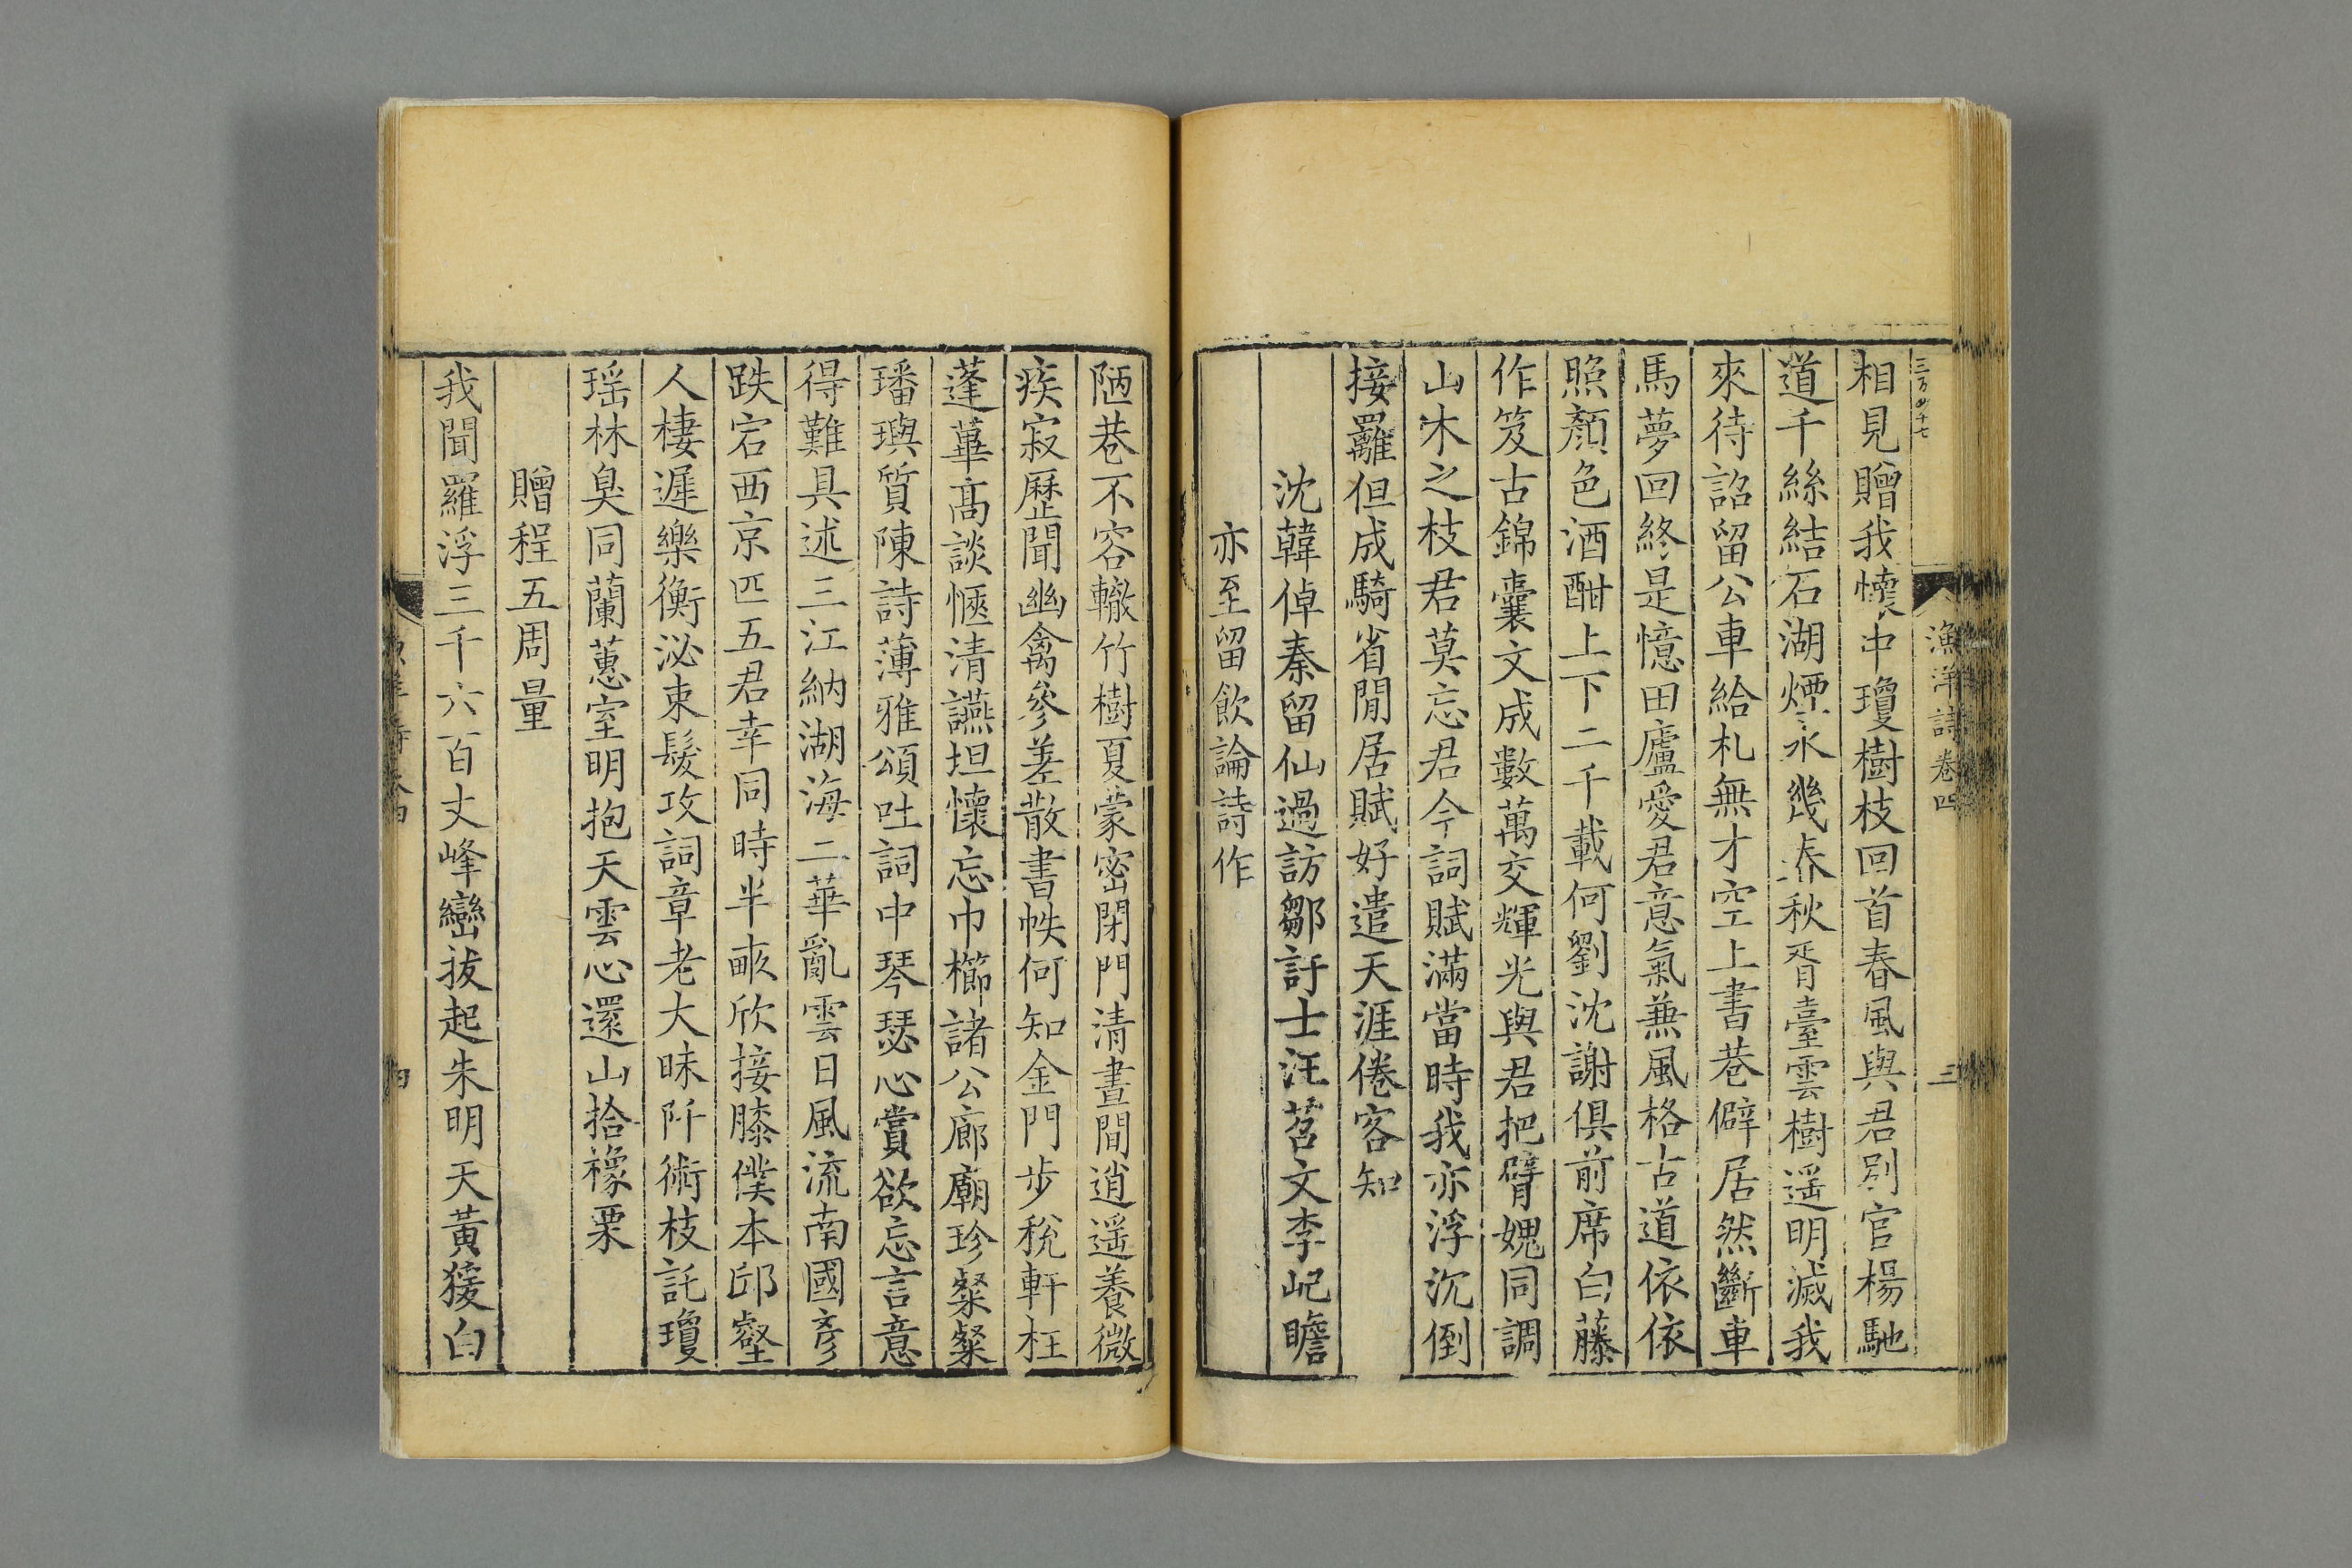 漁洋詩卷四
三
相見贈我懷中瓊樹枝回首春風與君别官楊馳
道千絲結石湖煙水幾春秋胥臺雲樹遥明滅我
來待詔留公車給札無才空上書巷僻居然斷車
馬夢回終是憶田廬愛君意氣蒹風格古道依依
照顏色酒酣上下二千載何劉沈謝俱前席白藤
作笈古錦囊文成數萬交輝光與君把臂媿同調
山木之枝君莫忘君今詞賦滿當時我亦浮沉倒
接䍦但成騎省閒居賦好遣天涯倦客知
沈韓倬秦留仙過訪鄒訏士汪苕文李屺瞻
亦至留飲論詩作
陋巷不容轍竹樹夏蒙密閉門清晝間逍遥養微
疾寂歷聞幽禽參差散書帙何知金門步稅軒枉
蓬蓽高談愜清讌坦懷忘巾櫛諸公廊廟珍粲粲
璠璵質陳詩薄雅頌吐詞中琴瑟心賞欲忘言意
得難具述三江納湖海二華亂雲日風流南國彥
跌宕西京匹五君幸同時半畝欣接膝僕本邱壑
人棲遲樂衡泌束髮攻詞章老大昧阡術枝託瓊
瑶林臭同蘭蕙室明抱天雲心還山拾橡栗
贈程五周量
我聞羅浮三千六百丈峰巒拔起朱明天黃猨白